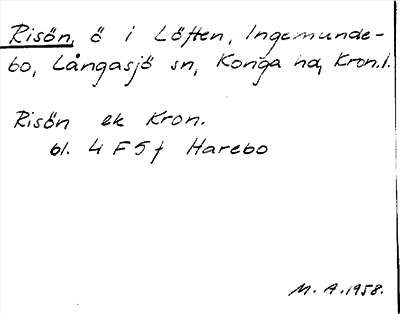 Risön, ö i Löften, Ingemunde-
bo, Långasjö sn, Konga hd, Kron.l.
Risön ek Kron.
bl. 4 F 5 f Harebo
M. A. 1958.